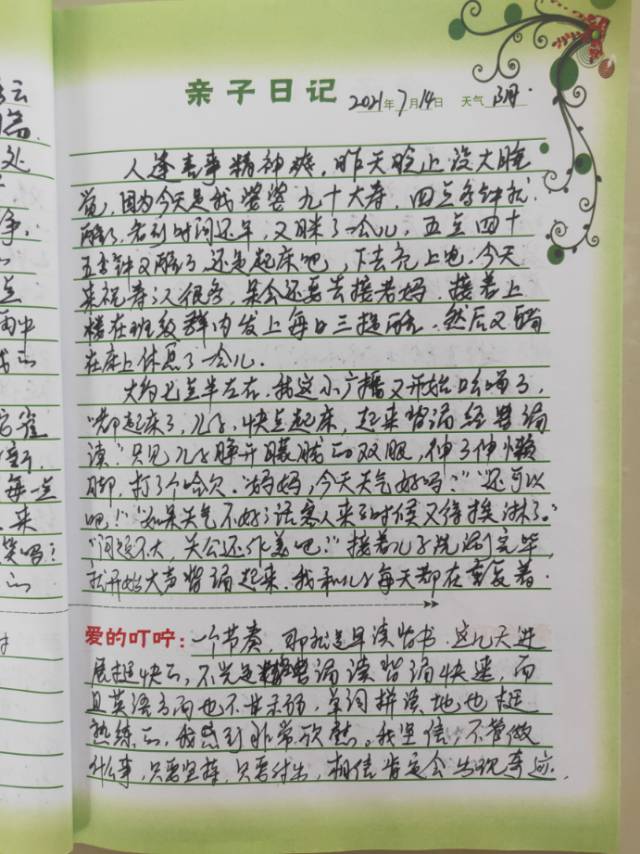 云
处
争.
点
两中
每一点
来
笑吗?
亲子日记 2021年7月14日 天气 阴.
人逢喜事精神爽，昨天晚上没大睡
觉，因为今天是我爸爸九十大寿，四点多钟就
醒了，看到时间还早，又眯了一会儿，五点四十
五分钟又醒了，还是起床吧，下去充上电，今天
来祝寿的人很多，呆会还要去接老妈，接着上
楼在班级群内发上每日三提醒，然后又躺
在床上休息了一会儿.
大约七点半左右，我这小广播又开始吆喝了，
"都起床了，儿子，快点起床，起来背诵经典诵
读"只见儿子睁开朦胧的双眼，伸了伸懒
脚，打了个哈欠."妈妈，今天天气好吗?""还可以
吧!""如果天气不好的话客人来的时候又得挨淋了."
"问题不大，关公还作美吧."接着儿子洗漱完毕，
就开始大声背诵起来.我和儿子每天都在重复着
爱的叮咛：一个节奏，那就是早读背书.这几天进
展挺快的，不光是经典诵读背诵快速，而
且英语方面也不甘示弱，单词拼读地也挺
熟练的，我感到非常欣慰。我坚信，不管做
什么事，只要坚持，只要付出，相信肯定会出现奇迹.